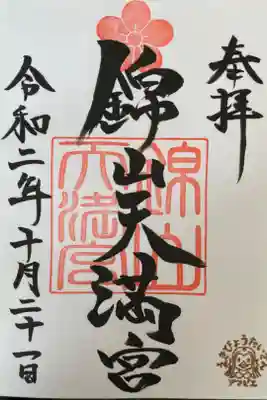 奉拝
錦山天満宮
令和二年十月二十一日
錦山
天満宮
アマビエ